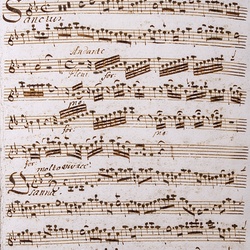 Sanctus.
Andante
Pleni for:
pia
for: pia
for
molto vivace
Osanna.